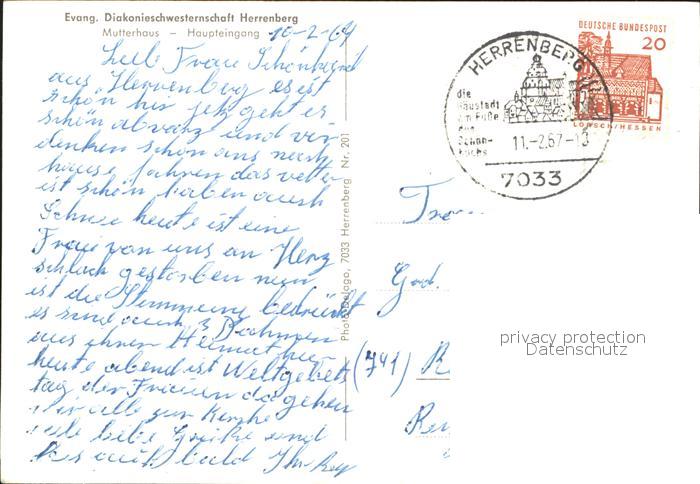 Evang. Diakonieschwesternschaft Herrenberg
Mutterhaus – Haupteingang
10-2-67
Lieb Frau Schönhard
aus Herrenberg es ist
schön hir jetz geht es
schon abwärz und wir
denken schon ans nach
hause fahren das weter
ist schön haben auch
Schnee heute ist eine
Frau von uns an Herz
schlach gestorben nun
ist die Stimmung bedrückt
es sind auch 3 Damen
aus ihren Heimat hir
heute abend ist Weltgebets
tag der Frauen da gehen
wir alle zur Kirche
viele liebe Grüße und
bis auf bald Ihr
Photo-Delago, 7033 Herrenberg Nr. 201
HERRENBERG
die
Gäustadt
am Fuße
des
Schön-
buchs
11.-2.67-13
7033
DEUTSCHE BUNDESPOST
20
LORSCH/HESSEN
God.
(741) R
privacy protection
Datenschutz